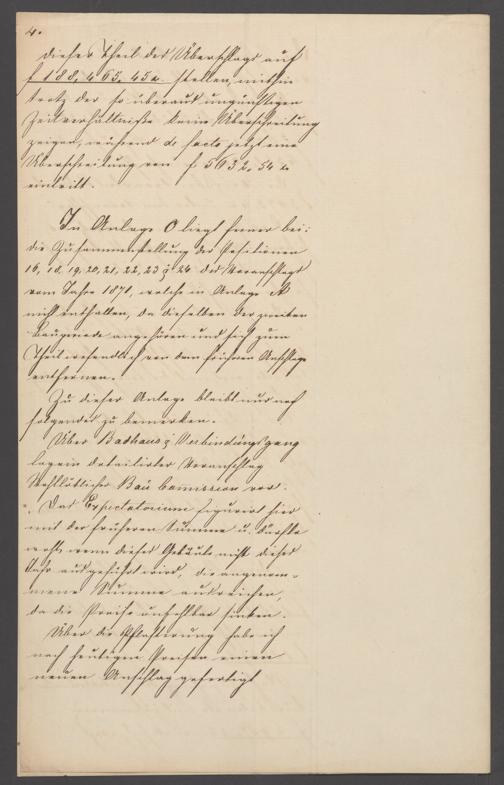 4.
dieser Theil des Überschlags auf
f 188,465.45 x. stellen, mithin
trotz der so überaus ungünstigen
Zeitverhältnisse keine Überschreitung
zeigen, während de facto jetzt eine
Überschreitung von f 5932.54 x
eintritt.
In Anlage O liegt ferner bei:
die Zusammenstellung der Positionen
16, 18, 19, 20, 21, 22, 23 & 24 des Voranschlags
vom Jahre 1871, welche in Anlage A
nicht enthalten, da dieselben der zweiten
Bauperiode angehören und sich zum
Theil wesentlich von dem früheren Anschlage
entfernen.
Zu dieser Anlage bleibt nur noch
folgendes zu bemerken.
Über Badhaus & Verbindungsgang
lag ein detailirter Voranschlag
Wohllöblicher Bau Commission vor.
Das Expectatorium figurirt hier
mit der früheren Summe u. dürfte
wohl, wenn dieses Gebäude nicht dieses
Jahr ausgeführt wird, die angenom-
mene Summe ausreichen,
da die Preise unfehlbar sinken.
Über die Pflasterung habe ich
nach heutigen Preisen einen
neuen Anschlag gefertigt